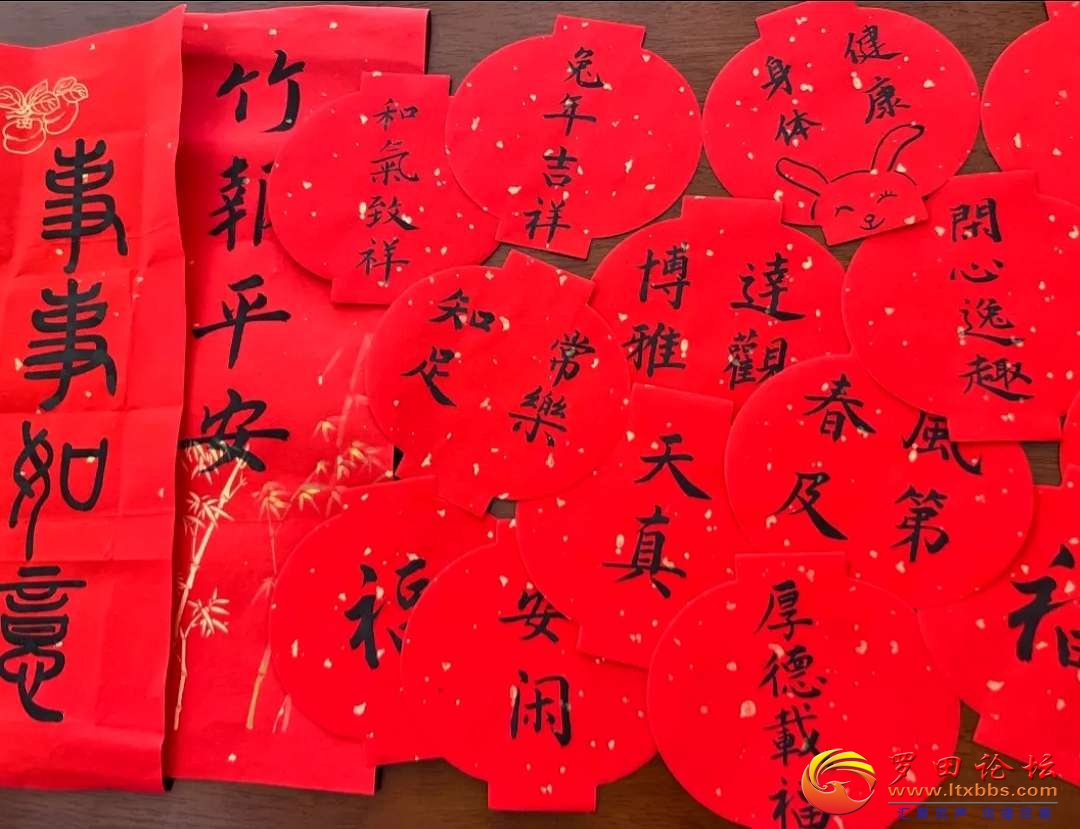 事事如意
竹報平安
和氣致祥
兔年吉祥
身体
健康
知足
常樂
博雅
達觀
閑心逸趣
春風
及第
天真
福
安闲
厚德載福
福
罗田论坛
www.ltxbbs.com